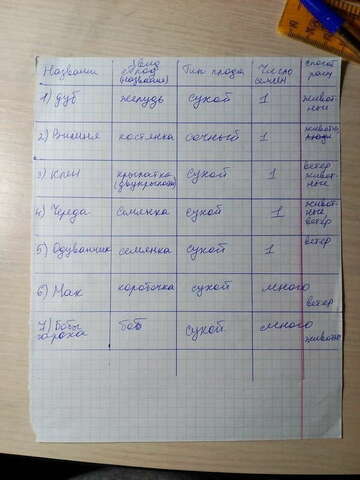 Название Вид плод (название) Тип плода Число семен способ расп
1) дуб желудь сухой 1 живот-ные
2) Вишня костянка сочный 1 животн.
3) Клён крылатка (двукрылатка) сухой 1 ветер живот-ные
4) Череда семянка сухой 1 живот-ные ветер
5) Одуванчик семенка сухой 1 ветер
6) Мак коробочка сухой много ветер
7) Бобы гороха боб сухой много животн